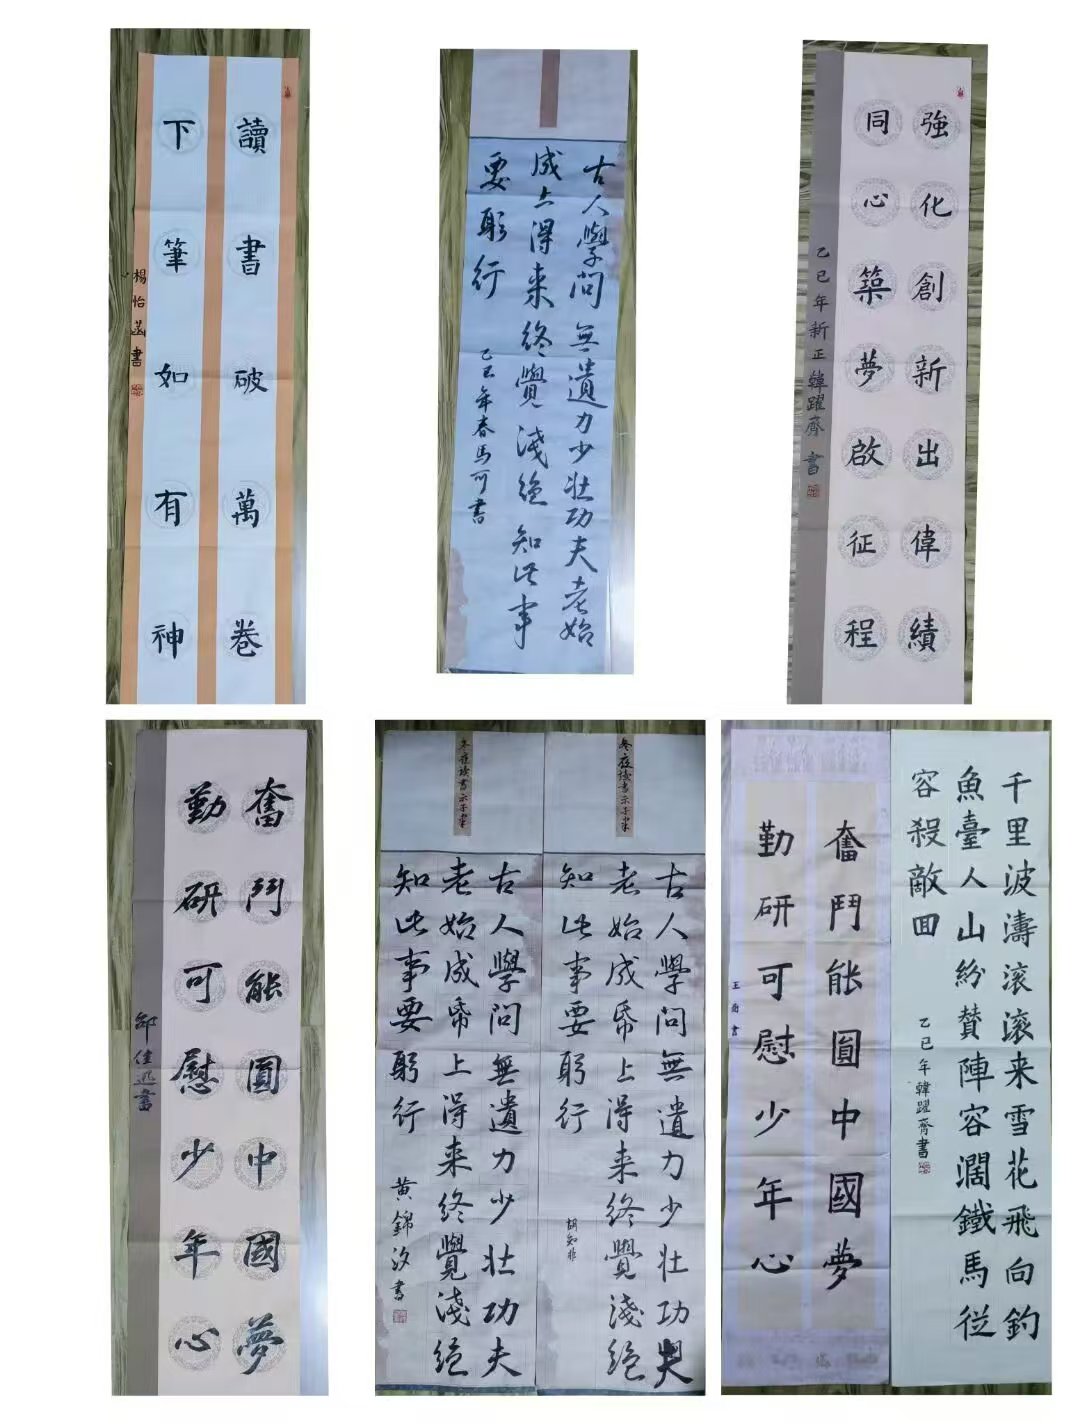 讀書破萬卷
下筆如有神
楊怡菡書
古人學問無遺力少壯功夫老始
成上得来終覺淺絕知此事
要躬行
乙巳年春馬可書
強化創新出偉績
同心築夢啟征程
乙巳年新正韓躍齊書
奮鬥能圓中國夢
勤研可慰少年心
邹佳迅書
冬夜读書示子聿
古人學問無遺力少壯功夫
老始成帋上得来終覺淺絕
知此事要躬行
黄錦汐書
冬夜读書示子聿
古人學問無遺力少壮功夫
老始成帋上得来終覺淺絕
知此事要躬行
胡知非
奮鬥能圓中國夢
勤研可慰少年心
千里波濤滚滚来雪花飛向釣
魚臺人山紛贊陣容濶鐵馬從
容殺敵回
乙巳年韓躍齊書